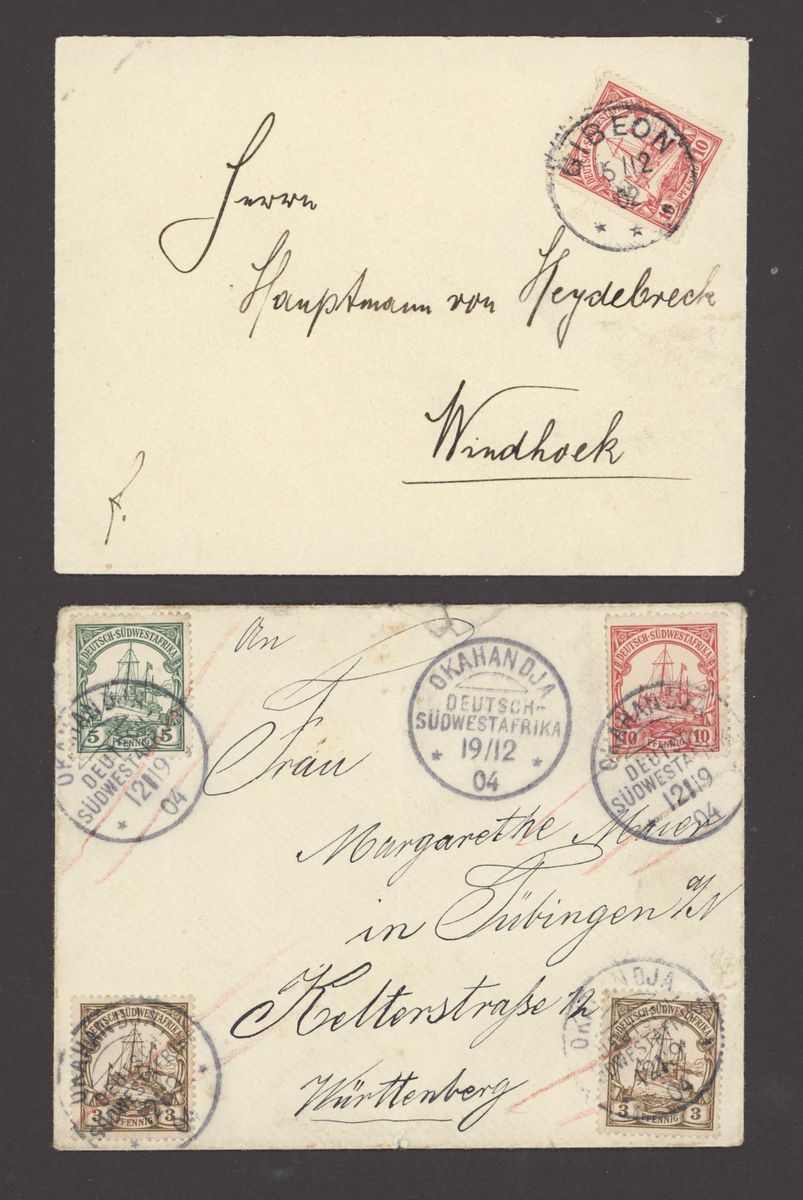 DEUTSCH-SÜDWESTAFRIKA
10
10 PFENNIG
GIBEON
5/12
Herrn
Hauptmann von Heydebreck
Windhoek
f.
DEUTSCH-SÜDWESTAFRIKA
5 PFENNIG 5
OKAHANDJA
DEUTSCH-
SÜDWESTAFRIKA
19/12
04
DEUTSCH-SÜDWESTAFRIKA
10 PFENNIG 10
OKAHANDJA
DEUTSCH-
SÜDWESTAFRIKA
19/12
04
OKAHANDJA
DEUTSCH-
SÜDWESTAFRIKA
19/12
04
An
Frau
Margarethe Maier
in Tübingen a/N
Kelterstraße 12
Württenberg
DEUTSCH-SÜDWESTAFRIKA
3 PFENNIG 3
OKAHANDJA
SÜDWESTAFRIKA
04
DEUTSCH-SÜDWESTAFRIKA
3 PFENNIG 3
OKAHANDJA
SÜDWESTAFRIKA
04